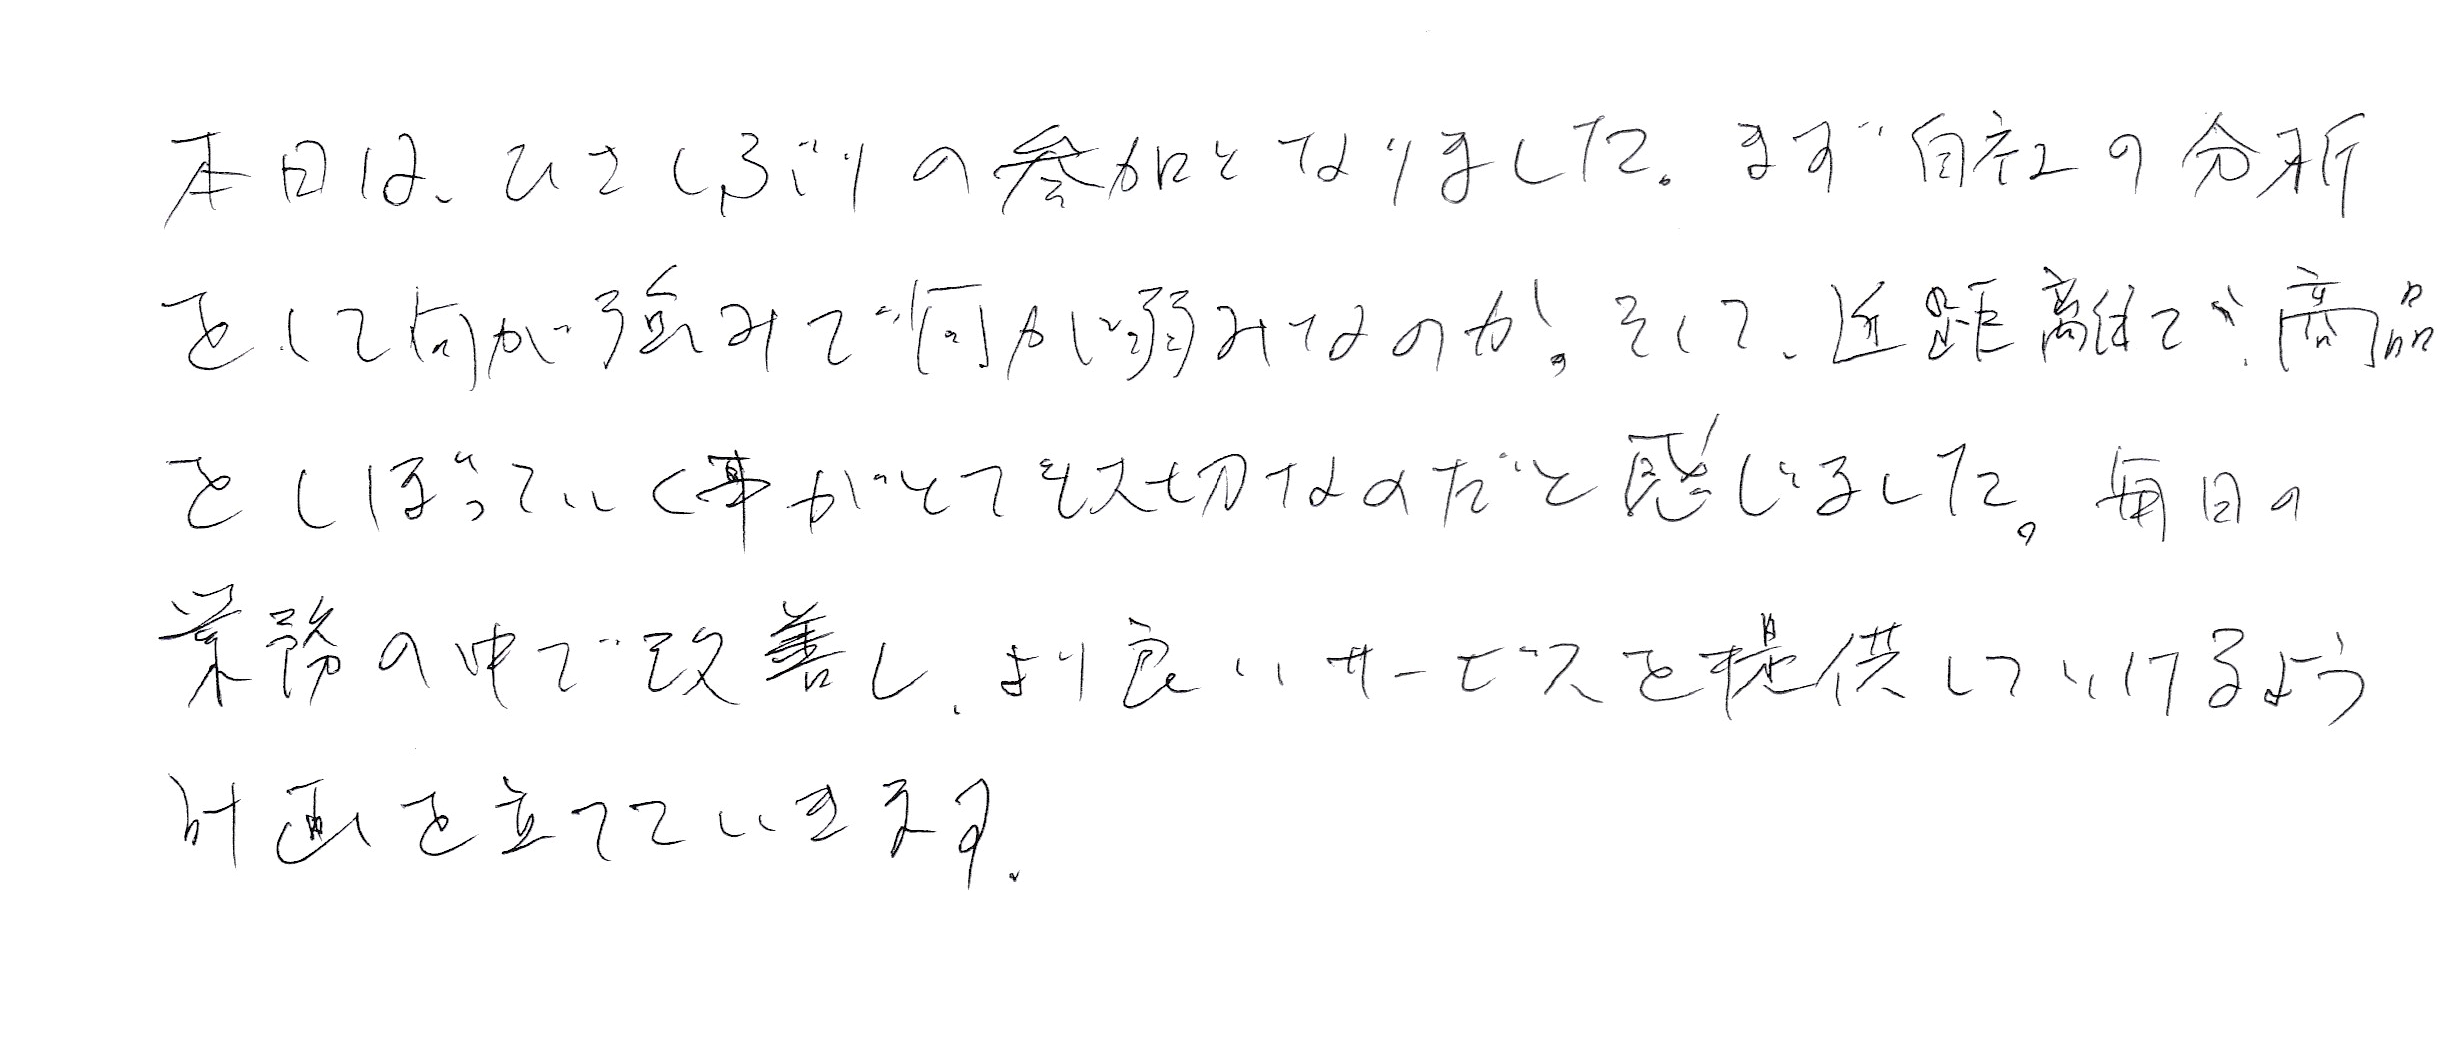 本日は、ひさしぶりの参加となりました。まず自社の分析
をして何が強みで何が弱みなのか。そして、近距離で、商品
をしぼっていく事がとても大切なのだと感じました。毎日の
業務の中で改善し、より良いサービスを提供していけるよう
計画を立てていきます。